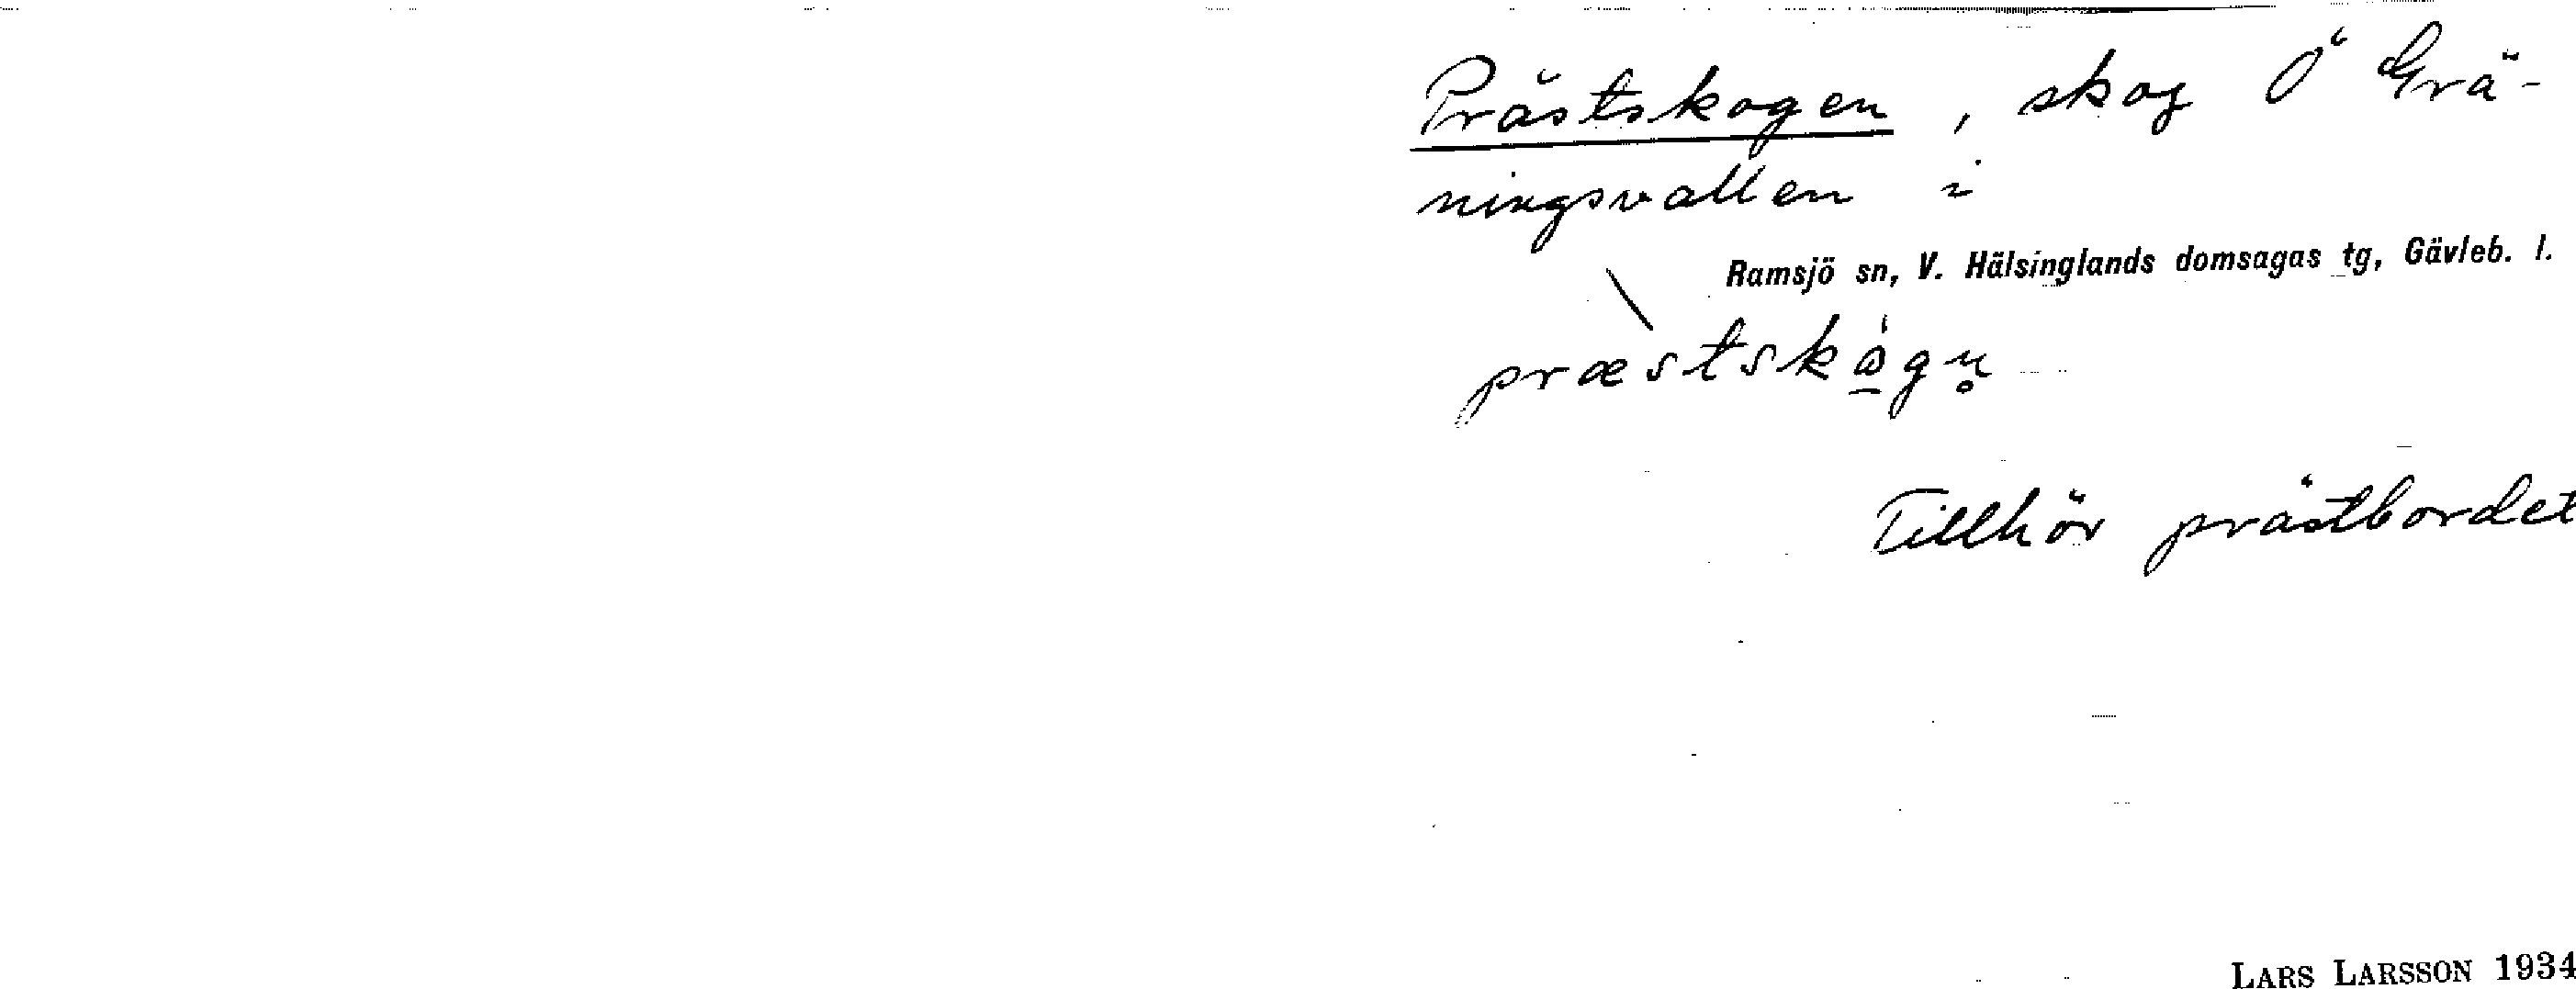 Prästskogen, skog Ö Grä-
ningsvallen i
Ramsjö sn, V. Hälsinglands domsagas tg, Gävleb. l.
\
præstskò̠gn̥
Tillhör prästbordet
LARS LARSSON 1934